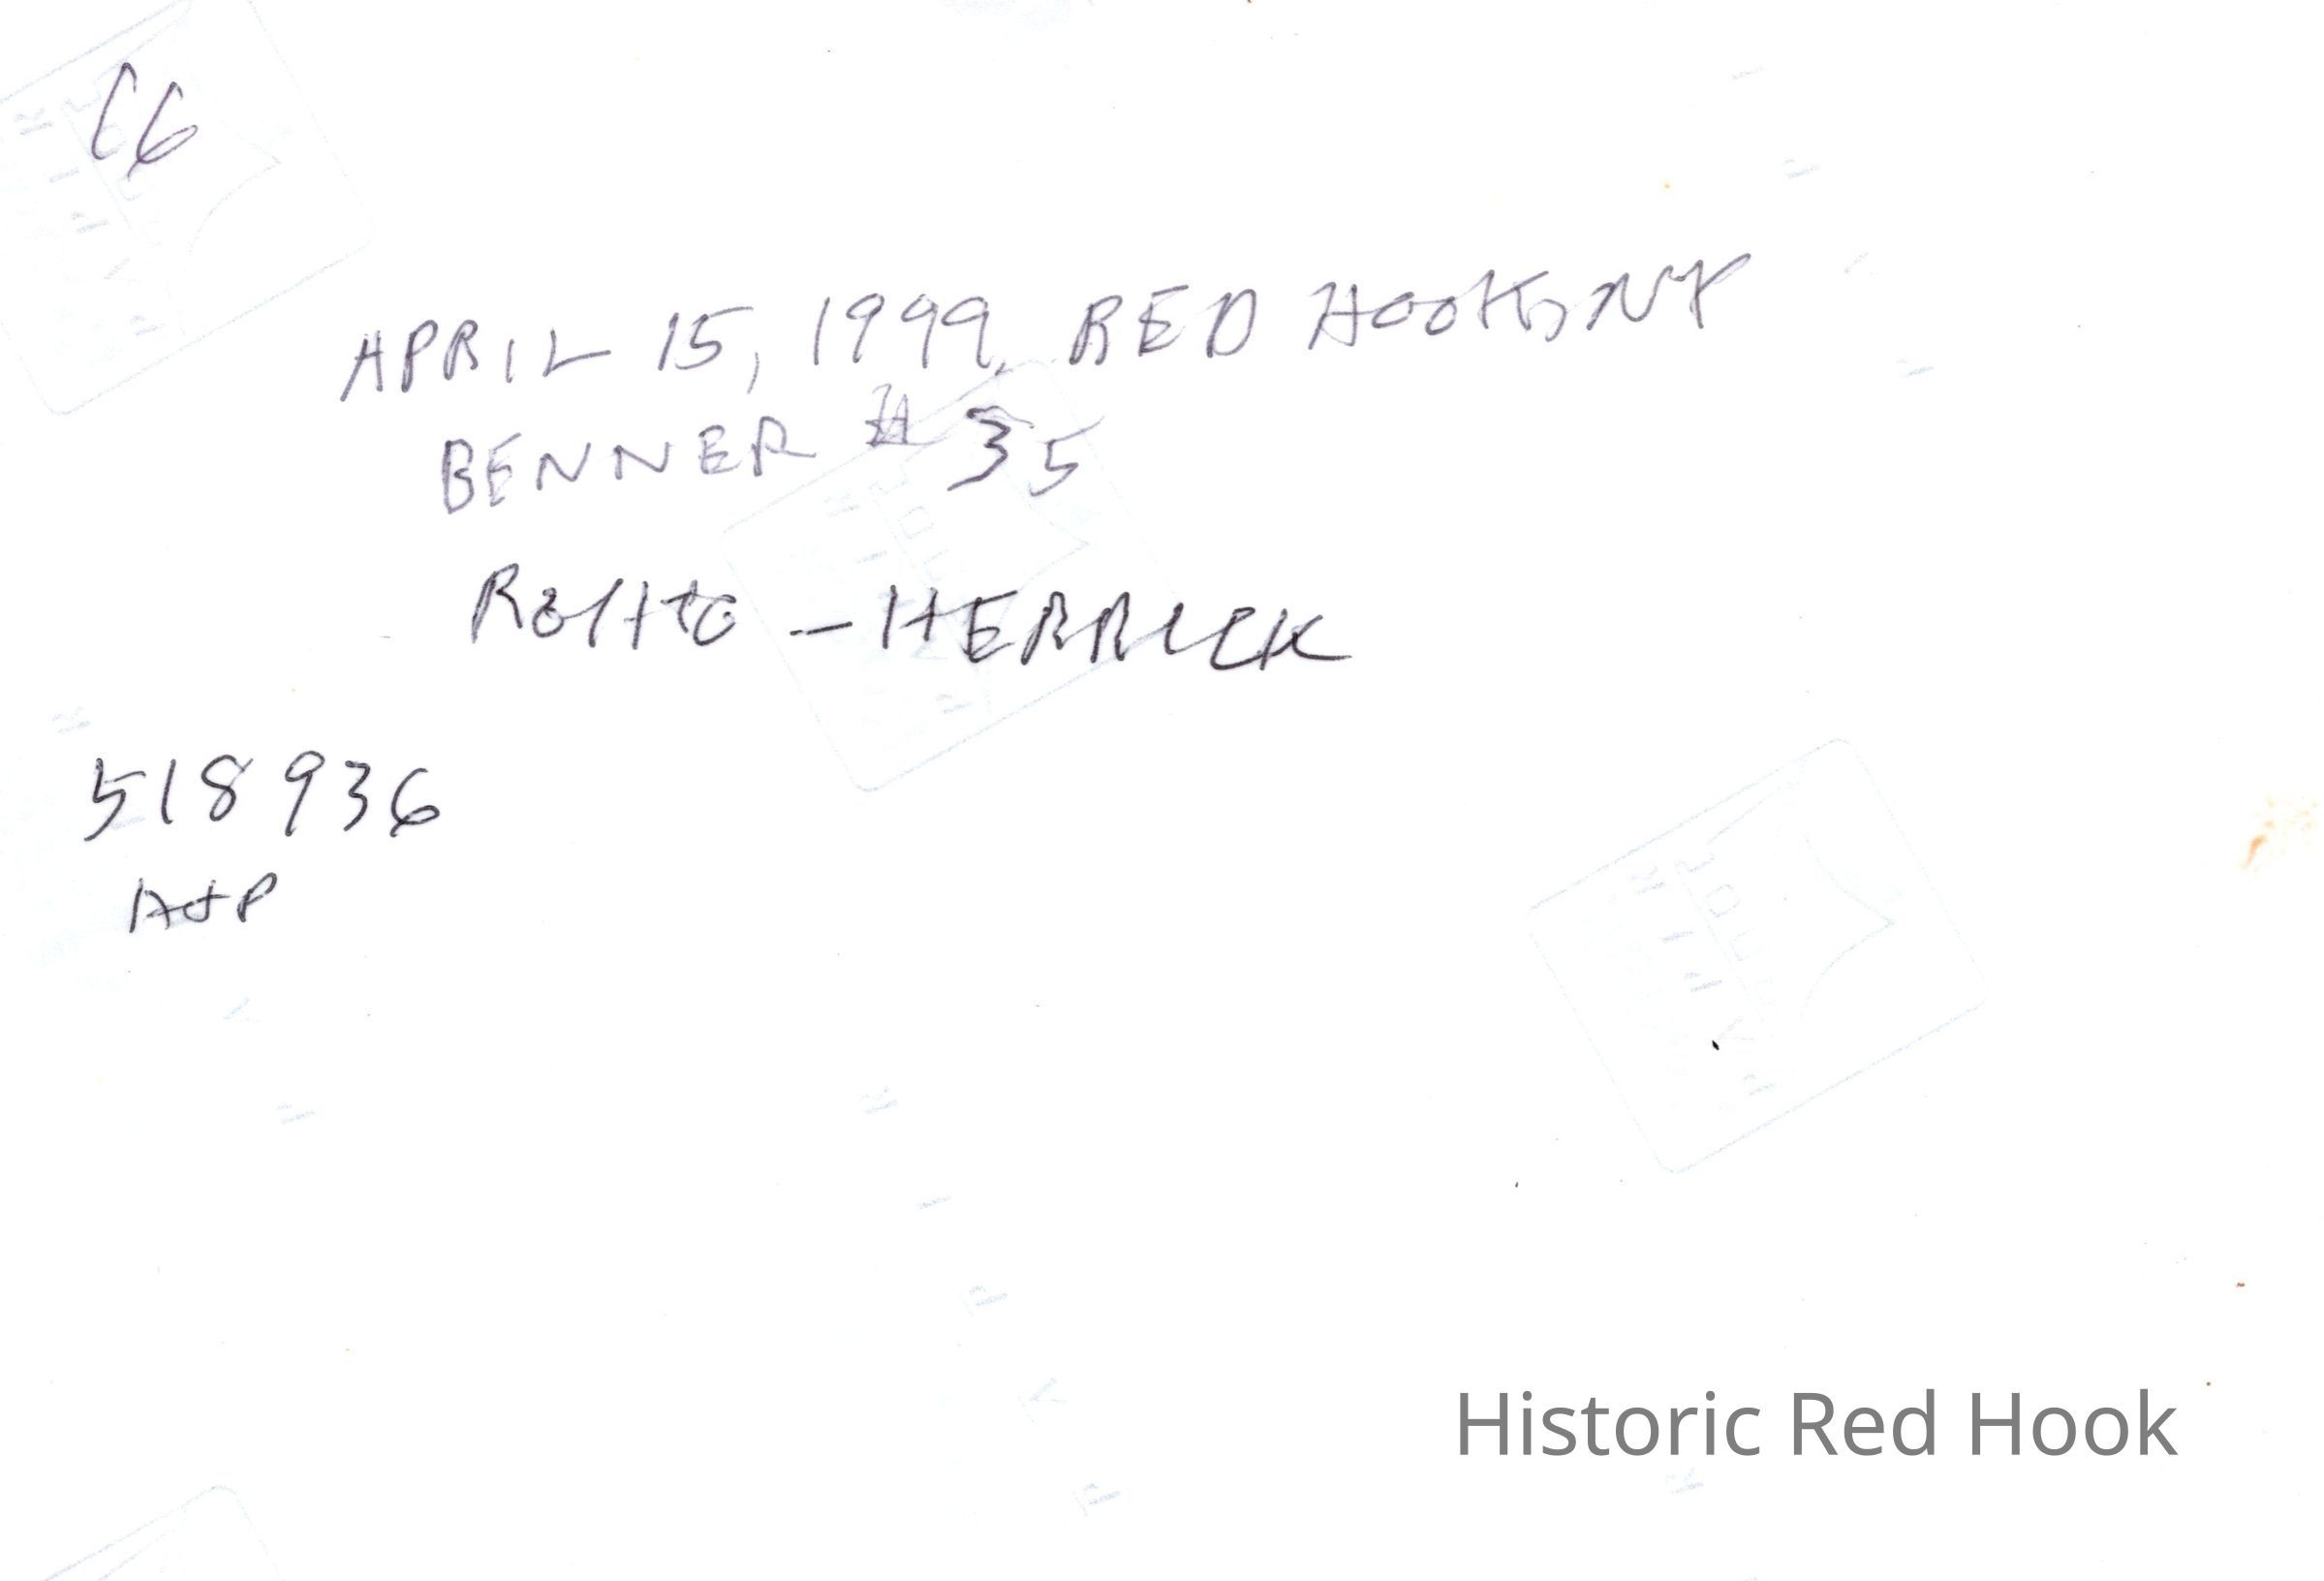 C6
APRIL 15, 1999, RED HOOK, NY
BENNER # 35
- HERRICK
518 936
AJP
Historic Red Hook